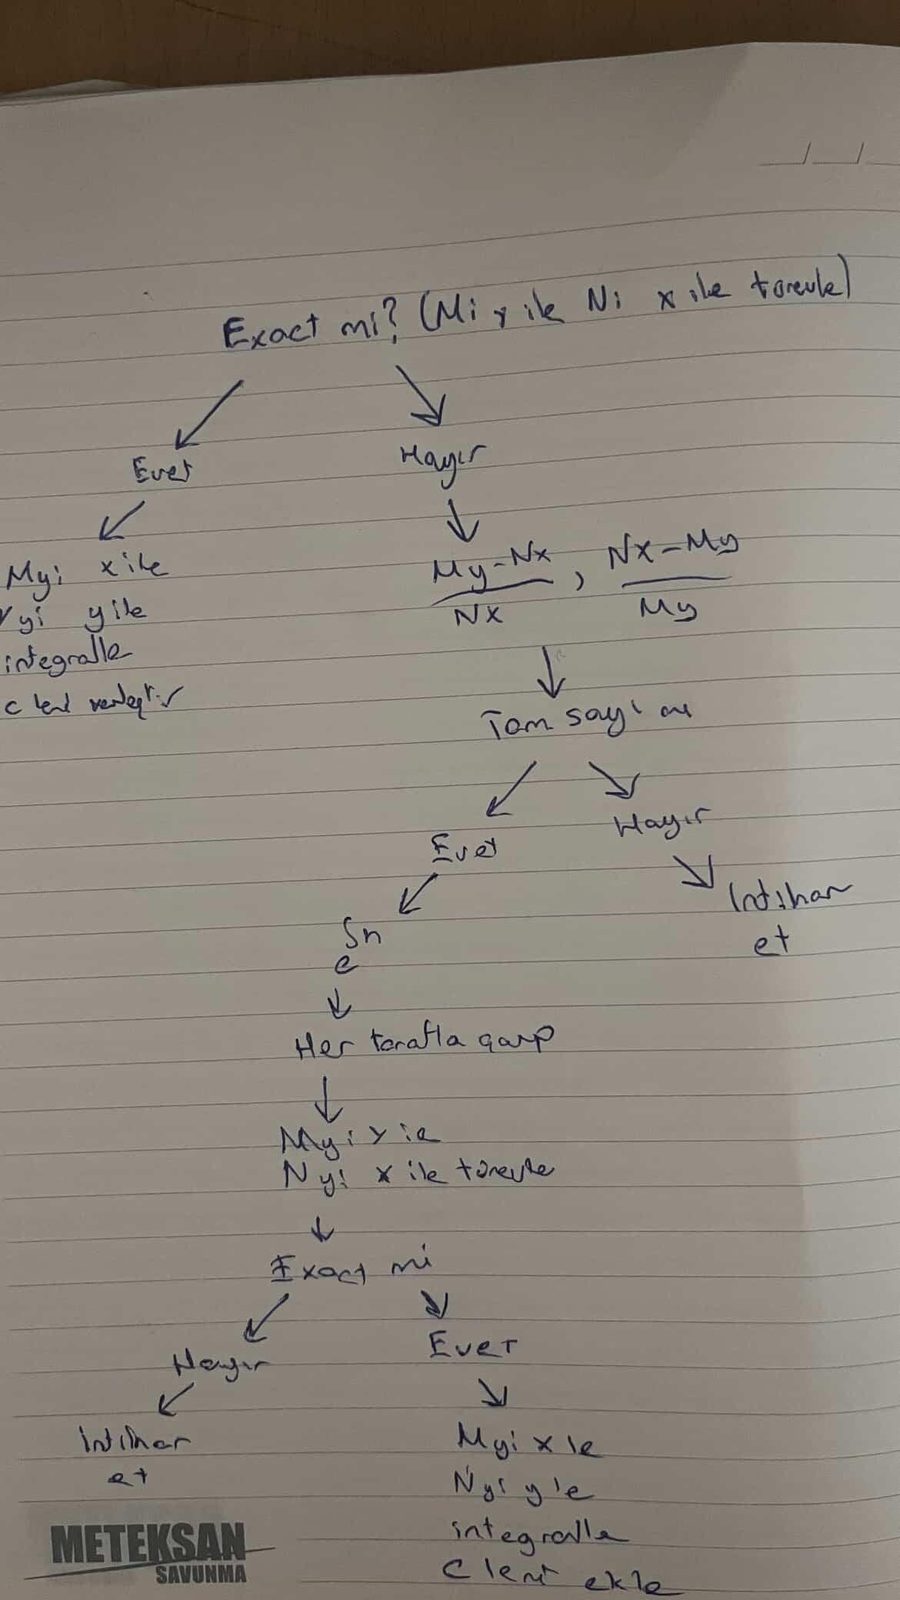 Exact mi? (Mi y ile Ni x ile türevle)
Evet
Hayır
Myi x ile
Nyi y ile
integralle
c leri
My-Nx / Nx , Nx-My / My
Tam sayı mı
Evet
Hayır
İntihar
et
∫n
e
Her tarafla çarp
Myi y ile
Nyi x ile türevle
Exact mi
Hayır
Evet
İntihar
et
Myi x le
Nyi y le
integralle
C leri ekle
METEKSAN
SAVUNMA